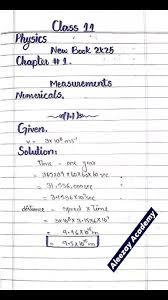 Class 11
Physics
New Book 2k25
Chapter # 1.
Measurements
Numericals.
Given.
v = 3x10⁸ ms⁻¹
Solution:
Time = one year
= 365x24x60x60 sec
= 31,536,000 sec
= 3.1536x10⁷ sec
distance = speed x Time
= 3x10⁸x3.1536x10⁷
= 9.46x10¹⁵ m
= 9.5x10¹⁵ m
Aleezay Academy